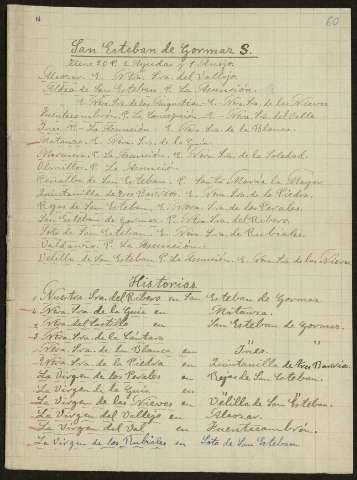 60
San Esteban de Gormaz S.
Tiene 20 P. 2 Ayudas y 1 Anejo.
Alcozar. E. Ntra. Sra. del Vallejo
Aldea de San Esteban. P. La Asunción.
E. Ntra. Sra. de las Angustias. E. Ntra. Sra. de las Nieves
Fuentecambrón. P. La Concepción. E. Ntra. Sra. del Valle
Ines. P. La Asunción. E. Ntra. Sra. de la Blanca.
Matanza. E. Ntra. Sra. de la Guia.
P. La Asunción. E. Ntra. Sra. de la Soledad.
Olmillos. P. La Asunción.
Peñalba de San Esteban. P. Santa María la Mayor
Quintanilla de Tres Barrios. E. Ntra. Sra. de la Piedra.
Rejas de San Esteban. E. Ntra. Sra. de los Perales.
San Esteban de Gormaz. P. Ntra. Sra. del Rivero.
Soto de San Esteban. E. Ntra. Sra. de Rubiales.
Valdanzo. P. La Asunción.
Velilla de San Esteban. P. La Asunción. E. Ntra. Sra. de las Nieves
Historias
Nuestra Sra. del Rivero en San Esteban de Gormaz.
Ntra. Sra. de la Guia en Matanza.
Ntra. Sra. del Castillo en San Esteban de Gormaz.
Ntra. Sra. de la
Ntra. Sra. de la Blanca en Ines.
Ntra. Sra. de la Piedra en Quintanilla de Tres Barrios
La Virgen de los Perales en Rejas de San Esteban.
La Virgen de la Guia en
La Virgen de las Nieves en Velilla de San Esteban.
La Virgen del Vallejo en Alcozar.
La Virgen del Val en Fuentecambrón.
La Virgen de los Rubiales en Soto de San Esteban